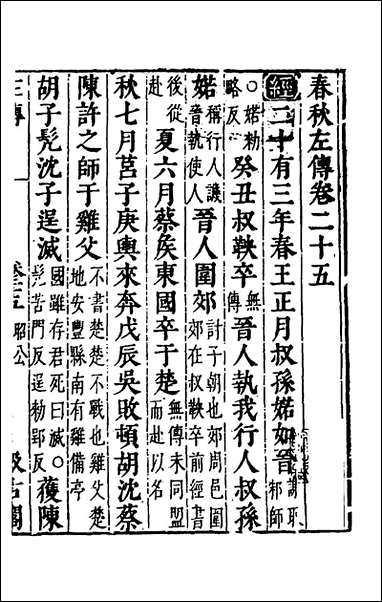 春秋左傳卷二十五
經二十有三年春王正月叔孫婼如晉
謝取
邾師
○婼勑
略反
癸丑叔鞅卒
無
傳
晉人執我行人叔孫
婼
稱行人譏
晉執使人
晉人圍郊
討子朝也郊周邑圍
郊在叔鞅卒前經書
後從
赴
夏六月蔡矦東國卒于楚
無傳未同盟
而赴以名
秋七月莒子庚輿來奔戊辰吳敗頓胡沈蔡
陳許之師于雞父
不書楚楚不戰也雞父楚
地安豐縣南有雞備亭
胡子髠沈子逞滅
國雖存君死曰滅○
髠苦門反逞勑郢反
獲陳
左傳
卷二十五
昭公
汲古閣